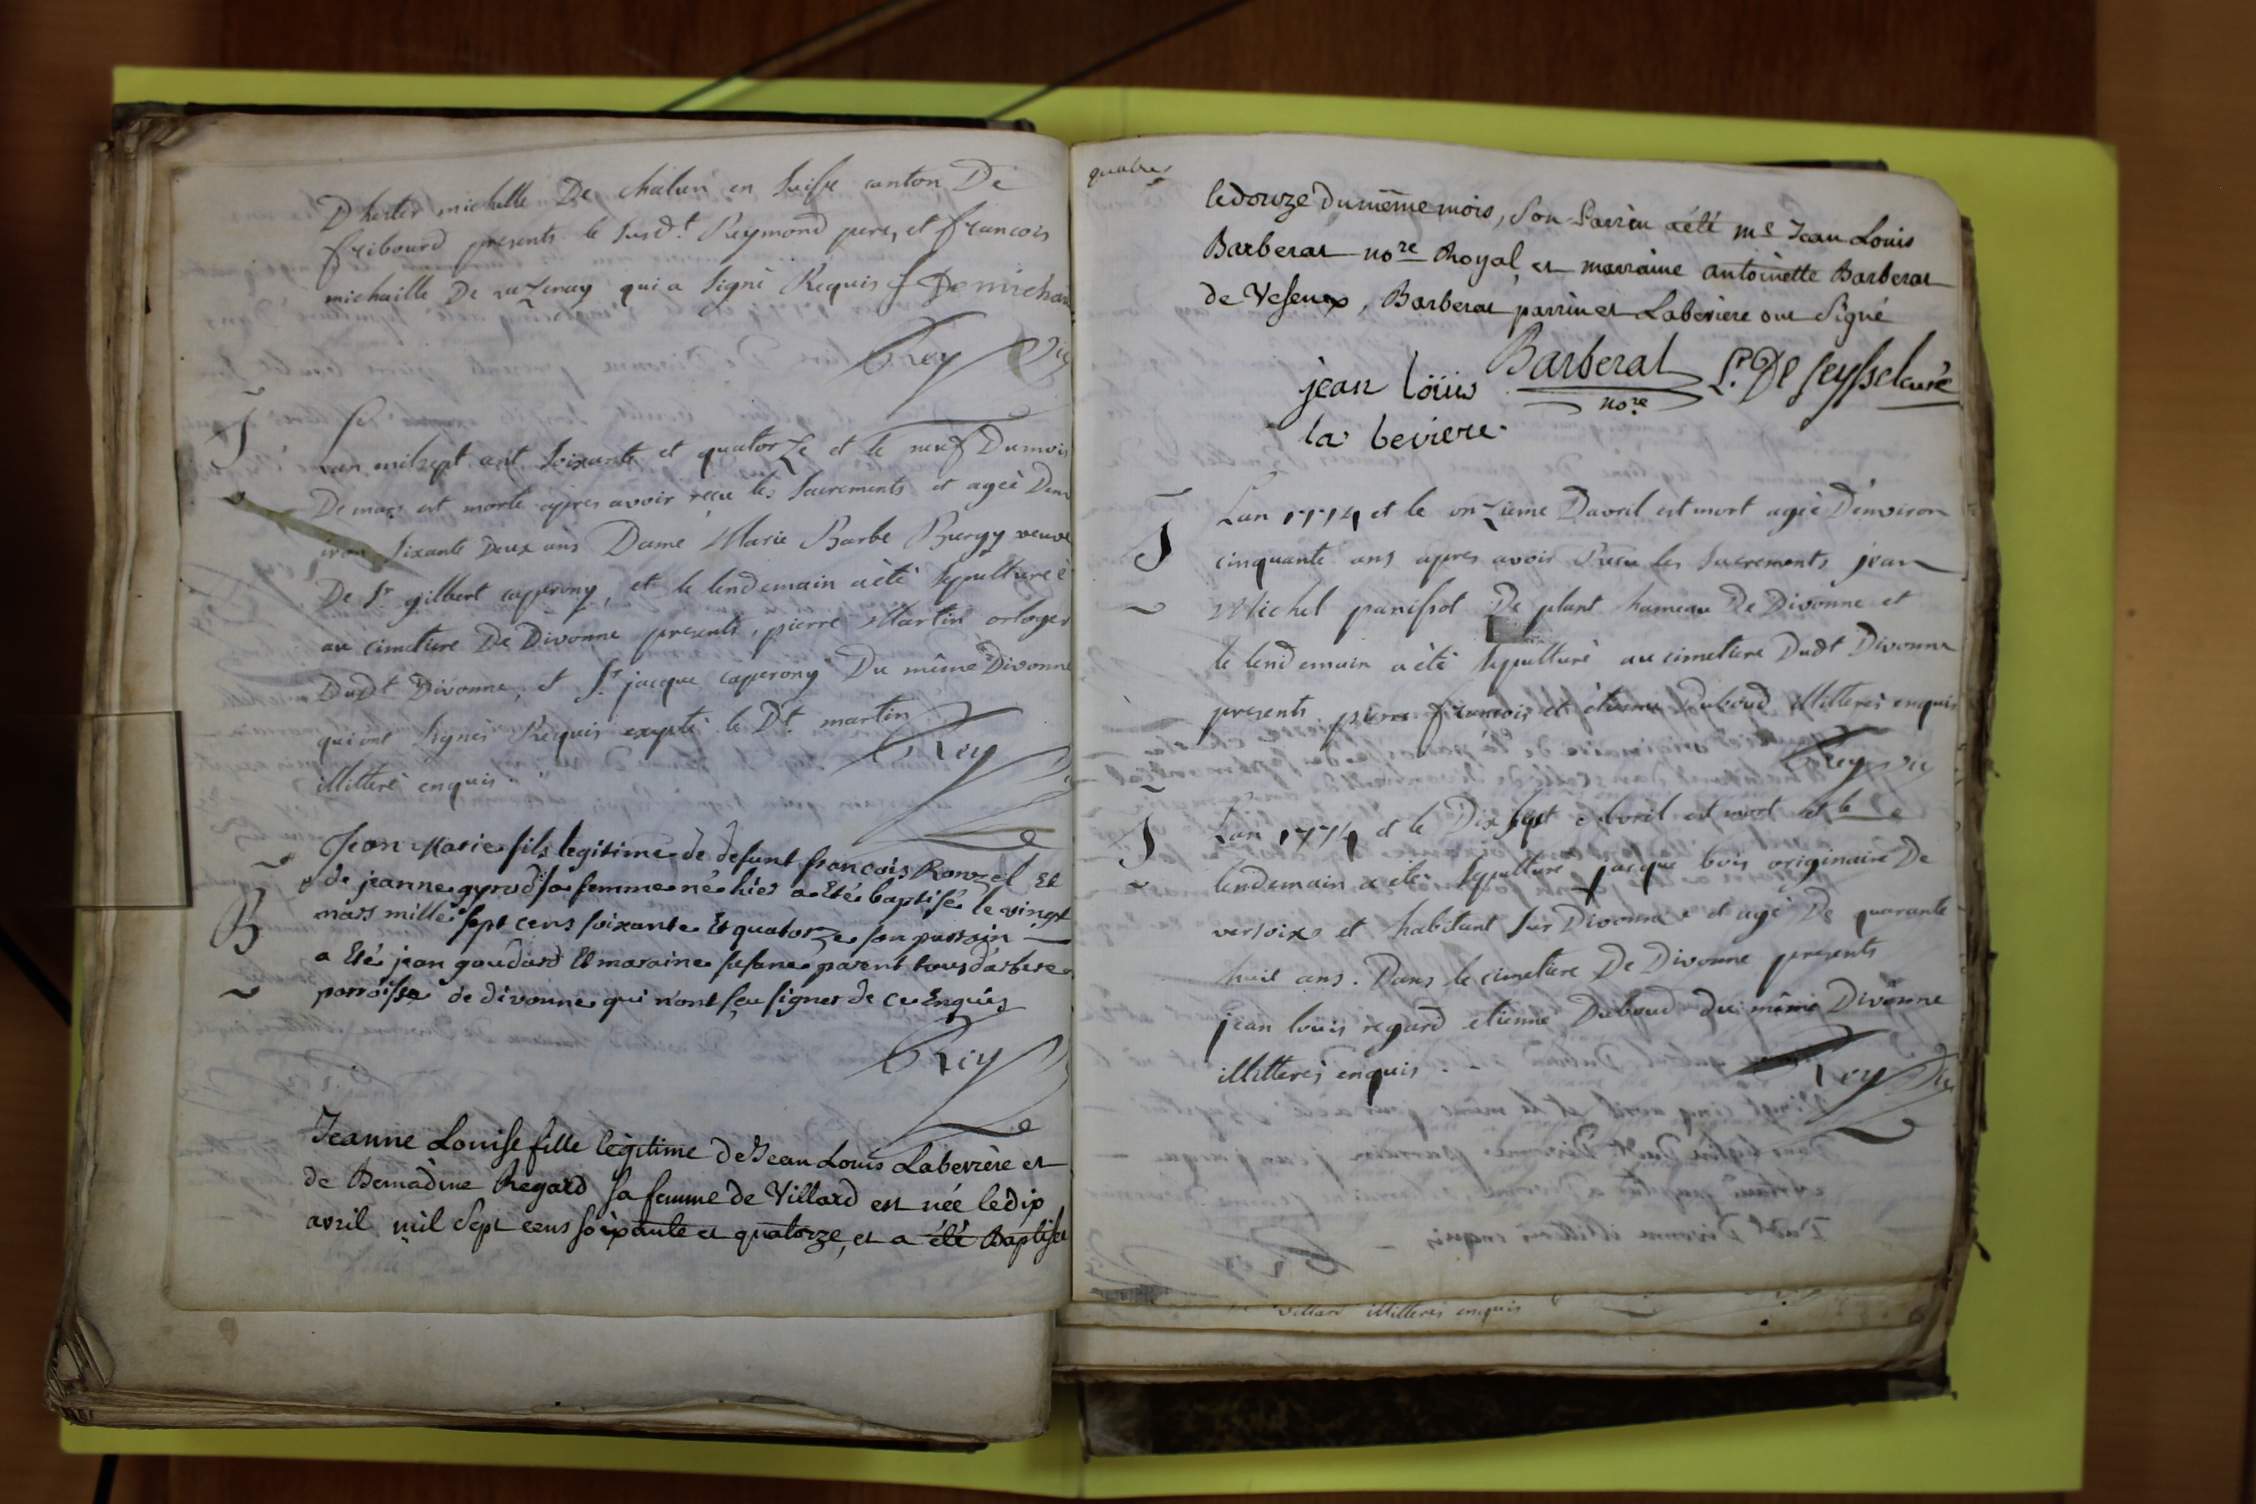 michelle De chalun en Suisse canton De
fribourd presents le Susdt. Reymond pere, et francois
michaille De qui a Signé Requis
Rey vic
S
Lan milsept cent Soixante et quatorze et le neuf Dumois
De mars est morte apres avoir reçu les Sacrements et ageé Denv
iron Sixante Deux ans Dame Marie Barbe Burgy veuve
De Sr gilbert caperony, et le lendemain a été Sepulturée
au cimetiere De Divonne presents, pierre Martin orloger
Dudt Divonne, et Sr. jacque caperony Du même Divonne
qui ont Signés Requis exepté le Dt. martin
illitteré enquis.
Rey
B
Jean Marie fils legitime de defunt francois Rouzel Et
de jeanne gyrod sa femme né hier a Eté baptisé le vingt
mars mille sept cens soixante Et quatorze son parrain
a Eté jean goudard Et maraine susane parent tous d'arbere
parroisse de divonne qui n'ont sçu signer de ce Enquis
Rey
Jeanne Louise fille legitime de Jean Louis Labevière et
de Bernadine Regard sa femme de Villard est née le dix
avril mil Sept cens soixante et quatorze, et a été Baptisée
quatre
le douze du même mois, Son Parrein a été me Jean Louis
Barberat nore Royal, et marraine antoinette Barberat
de Vesenex, Barberat parrin et Labeviere ont Signé
jean loüis Barberat nore P. De seyssel curé
la beviere
S
Lan 1774 et le onzieme Davril est mort ageé D'environ
cinquante ans apres avoir Reçu les Sacrements jean
Michel panissot De plant hameau De Divonne et
le lendemain a été Sepulturé au cimetiere Dudt Divonne
presents pierre francois et étienne Duboud illitterés enquis
Rey vic
S
Lan 1774 et le Dix sept avril est mort et le
lendemain a été Sepulturé jacque bois originaire De
versoix et habitant sur Divonne et agé De quarante
huit ans. Dans le cimetiere De Divonne presents
jean louis regard etienne Duboud du même Divonne
illitterés enquis.
Rey vic
Villard illitterés enquis